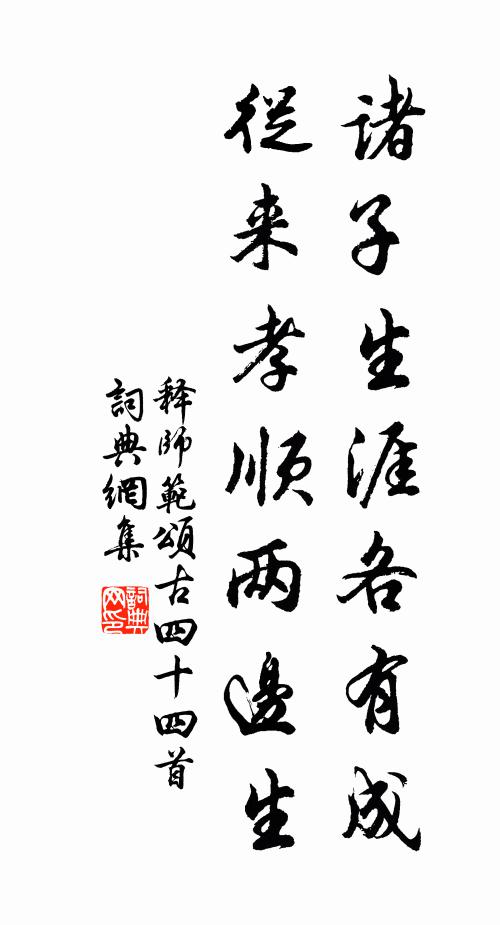 諸子生涯各有成
從来孝順两邊生
释師範頌古四十四首
詞典網集
詞典网印